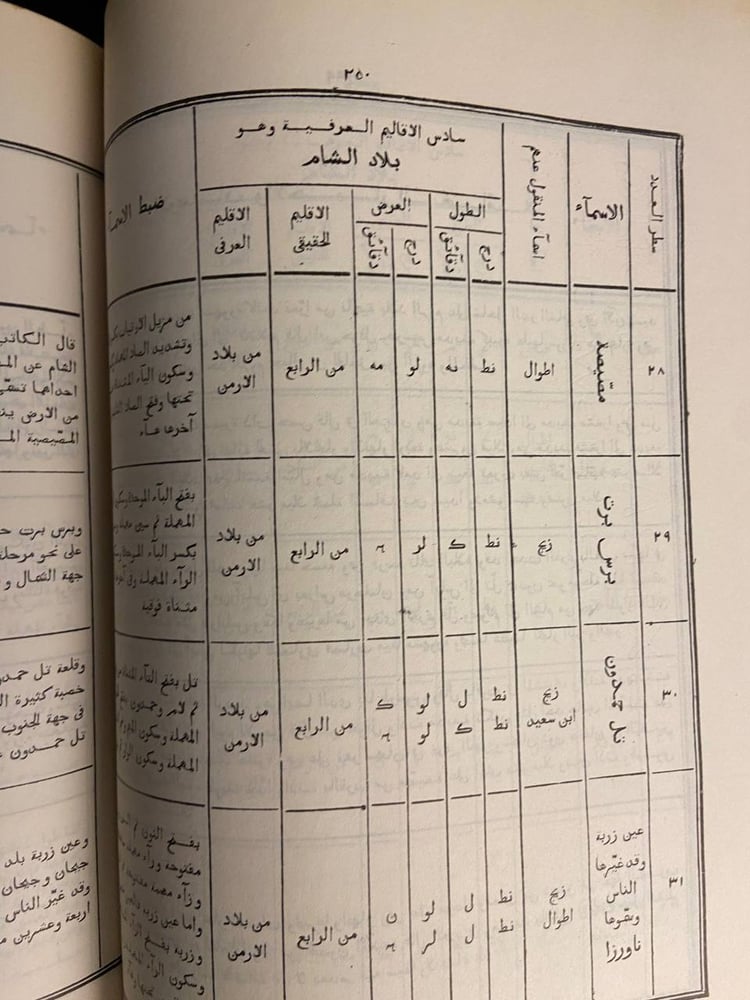 ٢٥٠
سطر العدد
الاسمآء
اسمآء المنقول عنهم
سادس الاقاليم العرفية وهو
بلاد الشام
الطول
العرض
درج
دقائق
درج
دقائق
الاقليم
الحقيقى
الاقليم
العرفى
ضبط الاسمآ
٢٨
مصّيصة
اطوال
نط
نه
لو
مه
من الرابع
من بلاد
الارمن
من مزيل الارتياب بكسر
وتشديد الصاد المهملة
وسكون اليآء المثناة من
تحتها وفتح الصاد الثانية
آخرها هآء
٢٩
برس برت
زيج
نط
ك
لر
ه
من الرابع
من بلاد
الارمن
بفتح البآء الموحدة وسكون
المهملة ثم سين مهملة
بكسر البآء الموحدة وسكون
الرآء المهملة وفى آخرها
مثناة فوقية
٣٠
تل حمدون
زيج
ابن سعيد
نط
نط
ل
ك
لو
لو
ك
ه
من الرابع
من بلاد
الارمن
تل بفتح التآء المثناة
ثم لام وحمدون بفتح
المهملة وسكون الميم وضم
المهملة وسكون الواو
٣١
عين زربة
وقد غيّرها
الناس
وسمّوها
ناورزا
زيج
اطوال
نط
نط
ل
ل
لو
لر
ن
ه
من الرابع
من بلاد
الارمن
بفتح النون ثم
مفتوحة ورآء مهملة
وزآء معجمة مفتوحة
واما عين زربه
وزربه بفتح الزآء
وسكون الرآء المهملة
قال الكاتب
الشام عن
احداها تسمّى
من الارض
المصّيصية
وبرس برت
على نحو مرحلة
جهة الشمال و
وقلعة تل حمدون
خصبة كثيرة
فى جهة الجنوب
تل حمدون
وعين زربة بلد
جيحان وجيحان
وقد غيّر الناس
اربعة وعشرين